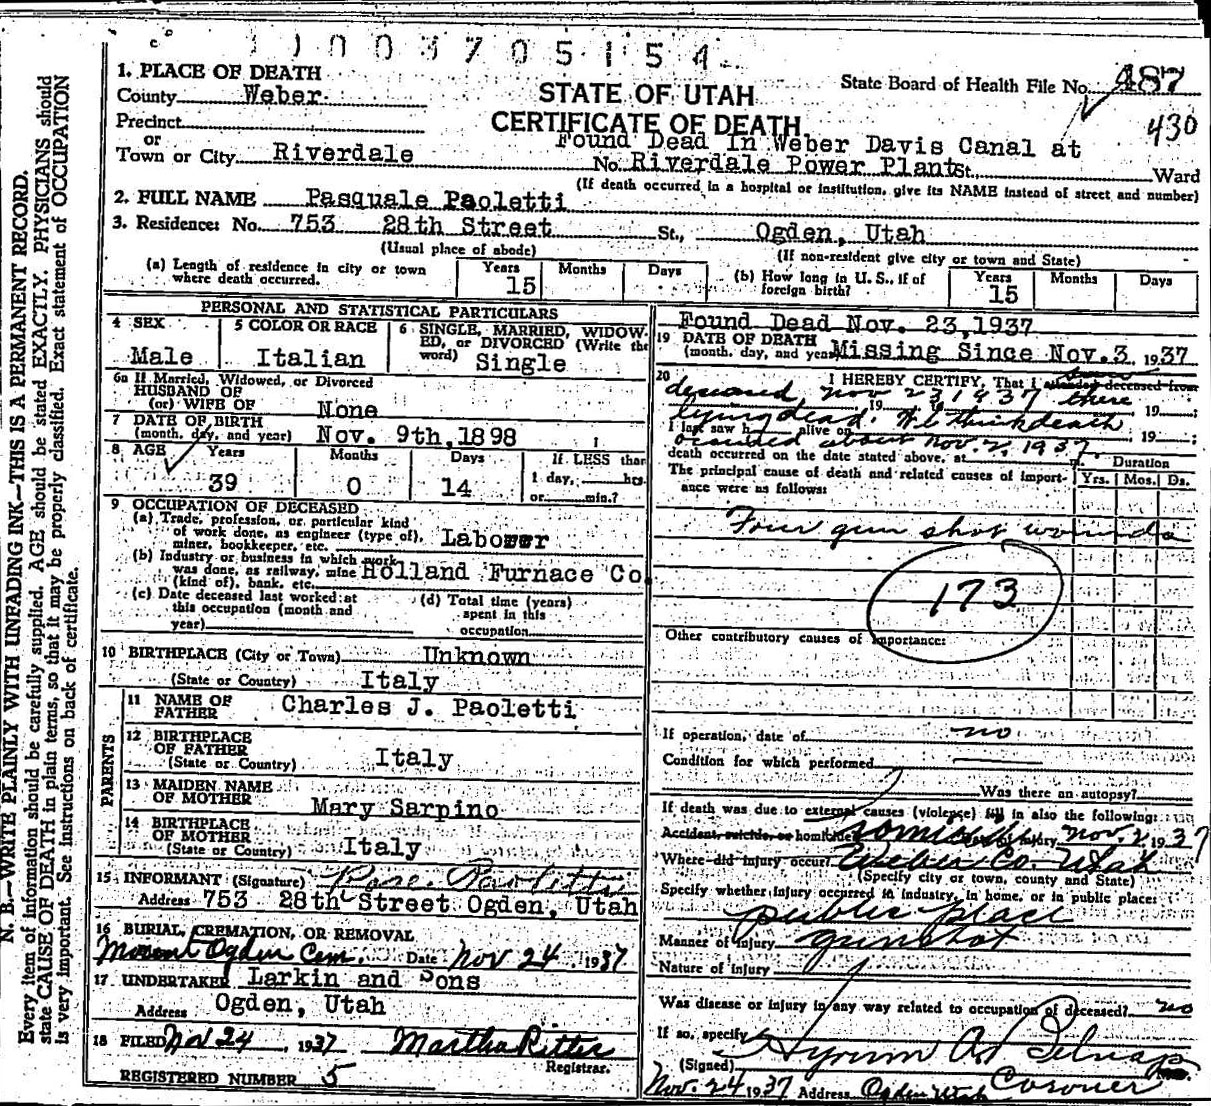 1003705154
1. PLACE OF DEATH
County Weber
Precinct
or
Town or City Riverdale
STATE OF UTAH
CERTIFICATE OF DEATH
State Board of Health File No. 487
430
Found Dead In Weber Davis Canal at
No. Riverdale Power Plant St. Ward
(If death occurred in a hospital or institution, give its NAME instead of street and number)
2. FULL NAME Pasquale Paoletti
3. Residence: No. 753 28th Street St., Ogden, Utah
(Usual place of abode) (If non-resident give city or town and State)
(a) Length of residence in city or town where death occurred. Years 15 Months Days
(b) How long in U. S., if of foreign birth? Years 15 Months Days
PERSONAL AND STATISTICAL PARTICULARS
4 SEX Male
5 COLOR OR RACE Italian
6 SINGLE, MARRIED, WIDOWED, or DIVORCED (Write the word) Single
6a If Married, Widowed, or Divorced
HUSBAND OF
(or) WIFE OF None
7 DATE OF BIRTH
(month, day, and year) Nov. 9th, 1898
8 AGE Years 39 Months 0 Days 14 If LESS than 1 day, hrs. or min.?
9 OCCUPATION OF DECEASED
(a) Trade, profession, or particular kind
of work done, as engineer (type of),
miner, bookkeeper, etc. Laborer
(b) Industry or business in which work
was done, as railway, mine
(kind of), bank, etc. Holland Furnace Co.
(c) Date deceased last worked at
this occupation (month and
year)
(d) Total time (years)
spent in this
occupation
10 BIRTHPLACE (City or Town) Unknown
(State or Country) Italy
PARENTS
11 NAME OF
FATHER Charles J. Paoletti
12 BIRTHPLACE
OF FATHER
(State or Country) Italy
13 MAIDEN NAME
OF MOTHER Mary Sarpino
14 BIRTHPLACE
OF MOTHER
(State or Country) Italy
15 INFORMANT (Signature) Rose Paoletti
Address 753 28th Street Ogden, Utah
16 BURIAL, CREMATION, OR REMOVAL
Mount Ogden Cem. Date Nov 24, 1937
17 UNDERTAKER Larkin and Sons
Address Ogden, Utah
18 FILED Nov 24, 1937 Martha Ritter
Registrar.
REGISTERED NUMBER 5
Found Dead Nov. 23, 1937
19 DATE OF DEATH
(month, day, and year) Missing Since Nov. 3, 1937
20 I HEREBY CERTIFY, That I attended deceased from
deceased Nov 23 1937 there
, 19 , to , 19 ;
lying dead. We think death
I last saw h alive on , 19 ;
occurred about Nov. 2, 1937.
death occurred on the date stated above, at
The principal cause of death and related causes of importance were as follows:
Duration
Yrs. Mos. Ds.
Four gun shot wounds
173
Other contributory causes of importance:
If operation, date of no
Condition for which performed
Was there an autopsy?
If death was due to external causes (violence) fill in also the following:
Accident, suicide, or homicide homicide injury Nov. 2 1937
Where did injury occur? Weber Co. Utah
(Specify city or town, county and State)
Specify whether injury occurred in industry, in home, or in public place:
public place
Manner of injury gunshot
Nature of injury
Was disease or injury in any way related to occupation of deceased? no
If so, specify
(Signed) Hyrum A. Belnap
Coroner
Nov. 24 1937 Address Ogden Utah
N. B.—WRITE PLAINLY WITH UNFADING INK—THIS IS A PERMANENT RECORD.
Every item of information should be carefully supplied. AGE should be stated EXACTLY. PHYSICIANS should
state CAUSE OF DEATH in plain terms, so that it may be properly classified. Exact statement of OCCUPATION
is very important. See instructions on back of certificate.